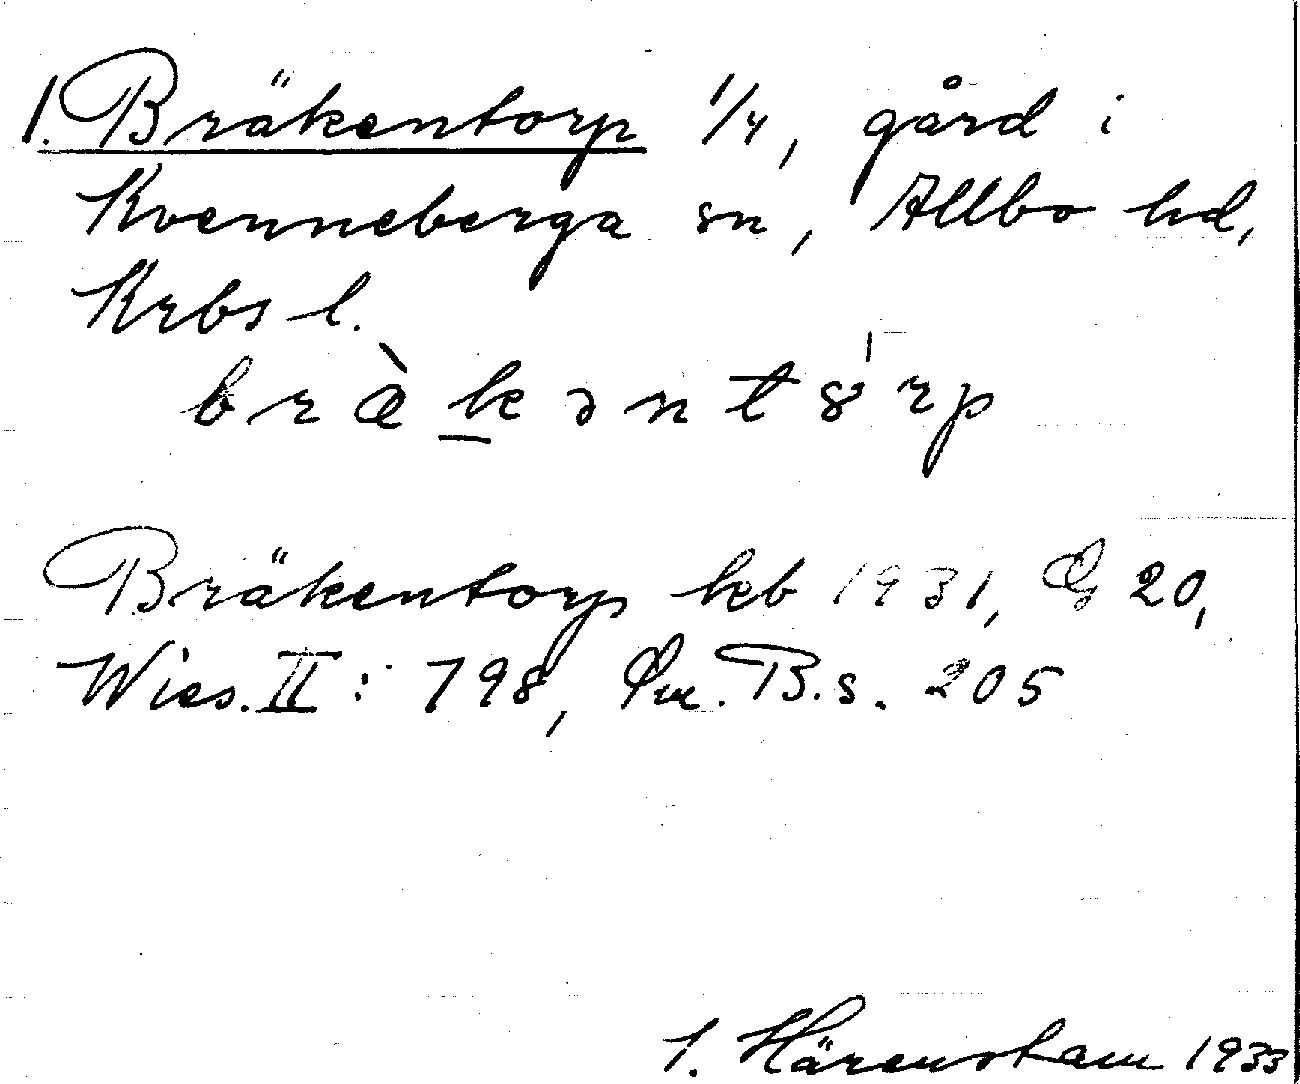 1. Bräkentorp 1/4, gård i
Kvenneberga sn, Allbo hd,
Krbs l.
bræ̀kəntȣ́rp
Bräkentorp kb 1931, G 20,
Wies. II: 798, Ow. B. s. 205
1. Härenstam 1933